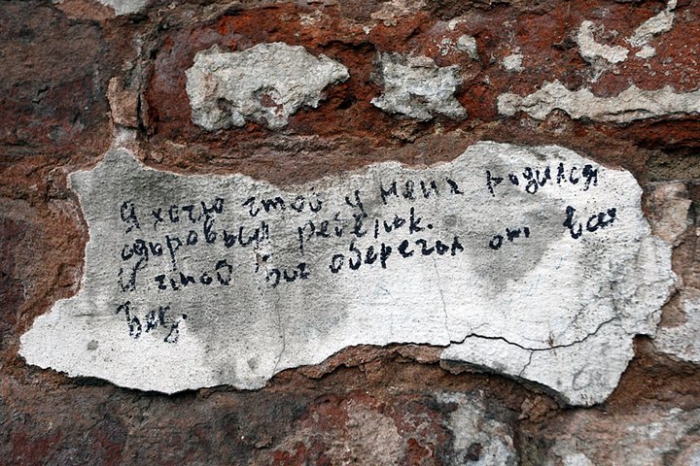 Я хочу чтоб у меня родился
здоровый ребёнок.
И чтоб Бог оберегал от всех
бед.